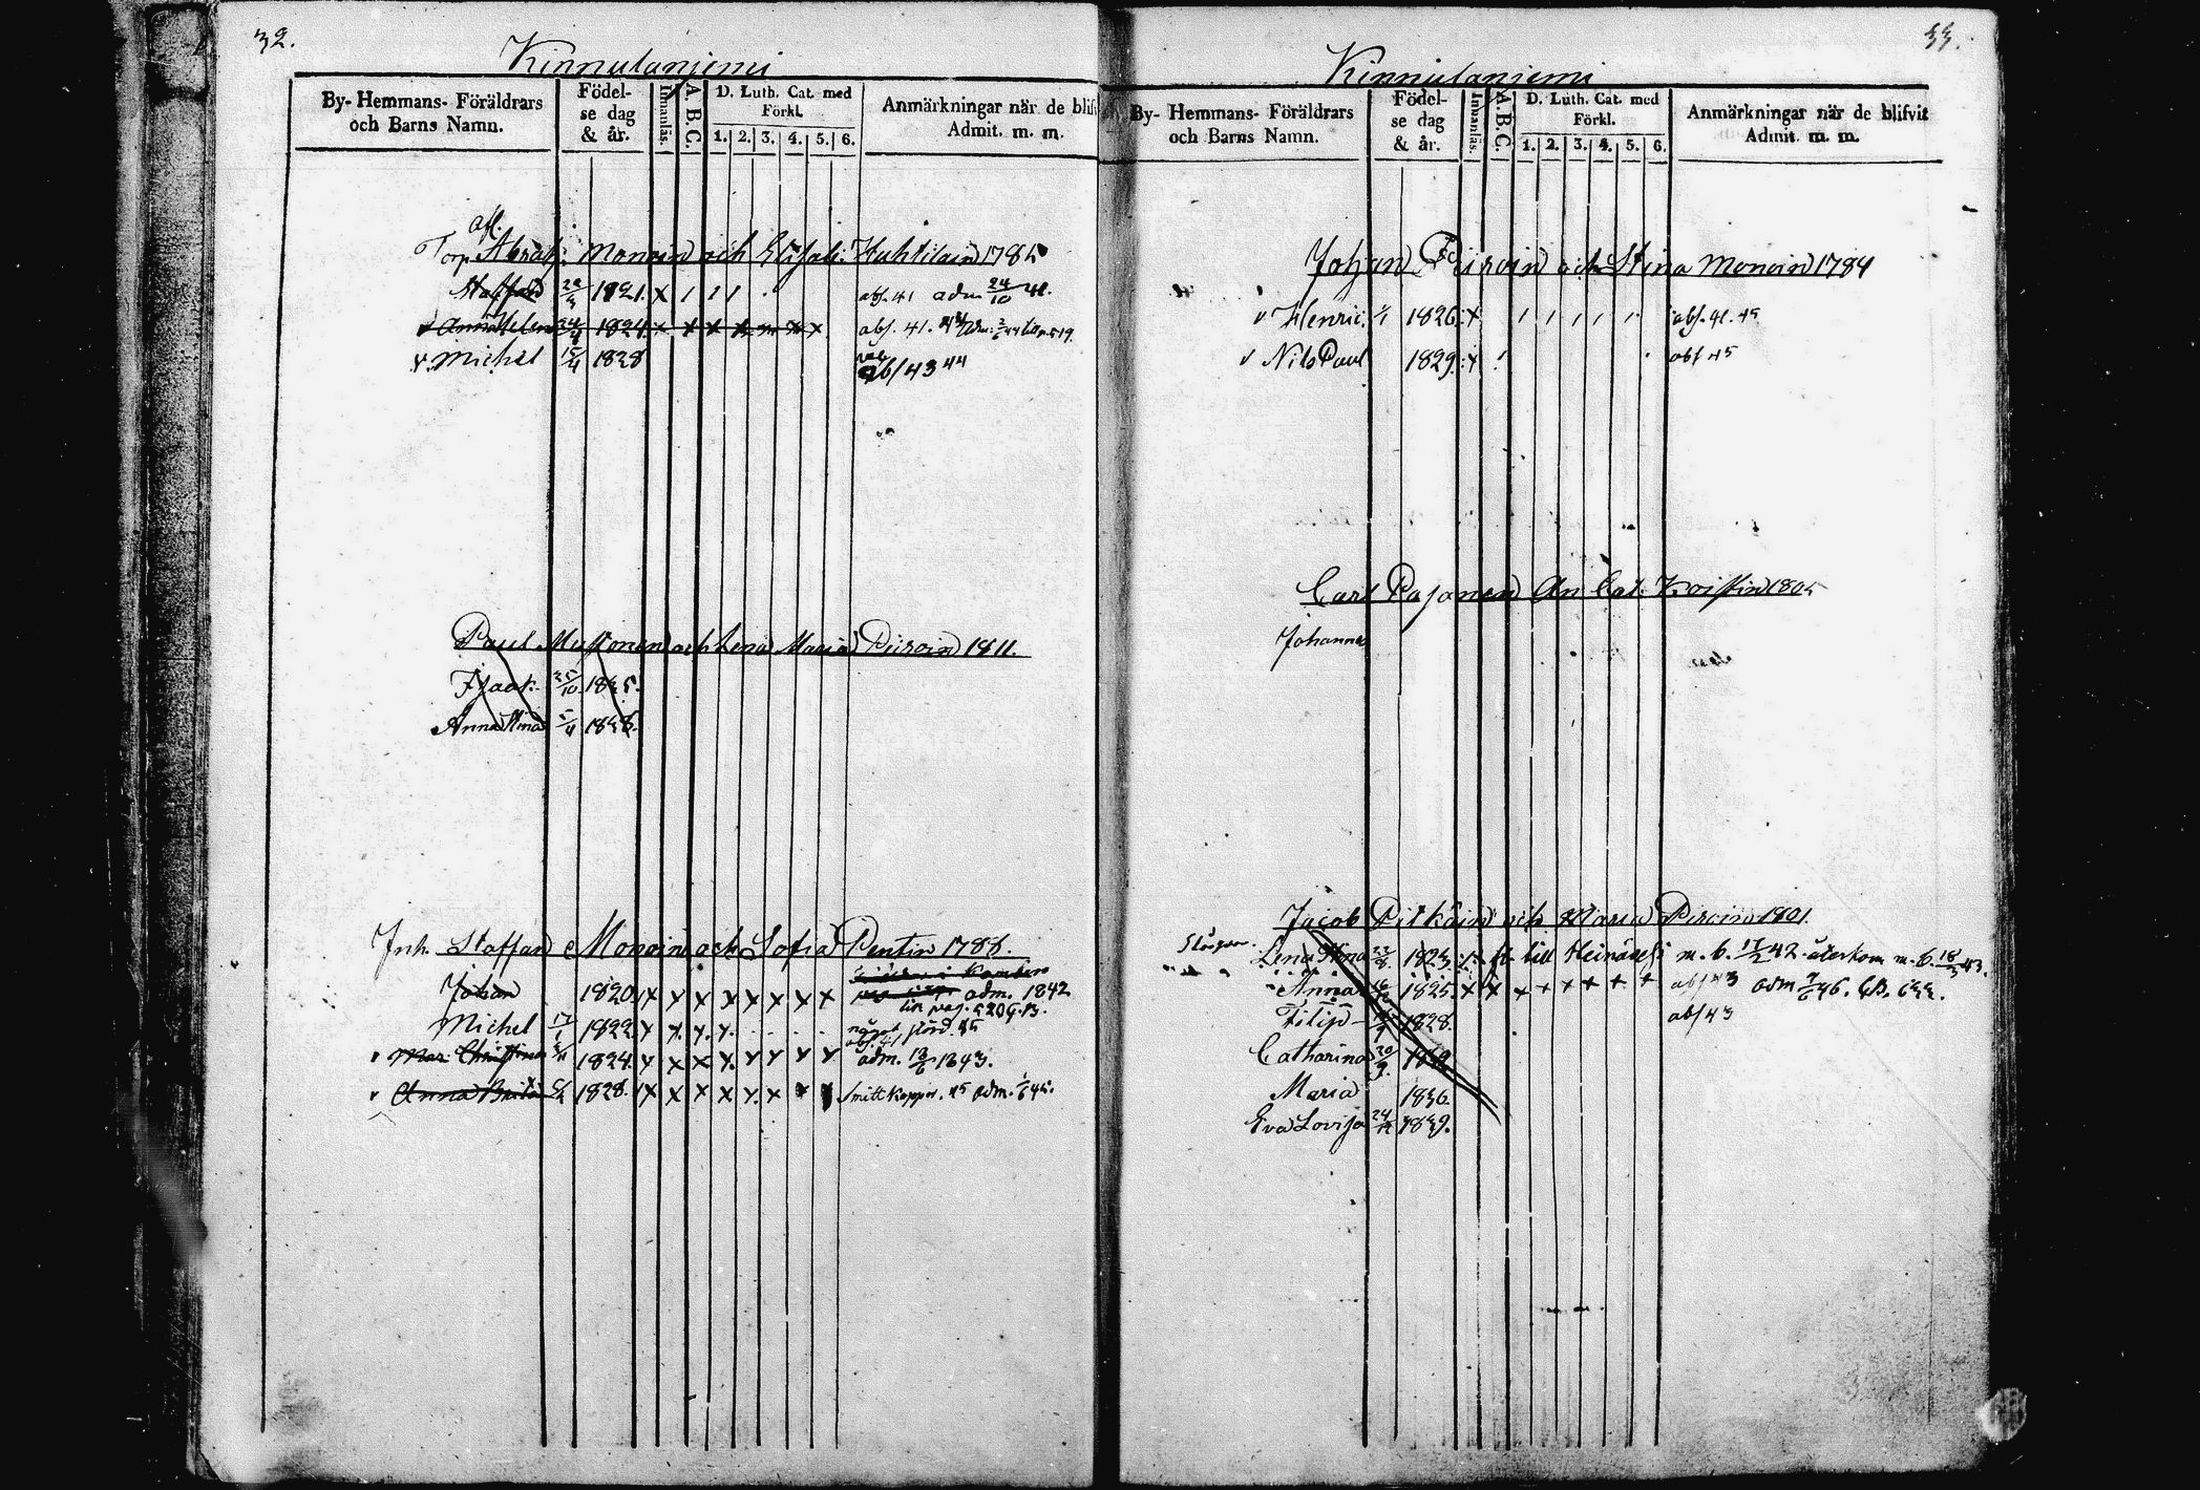 32.
Kinnulanjemi
By- Hemmans- Föräldrars och Barns Namn.
Födel- se dag & år.
Innanläs.
A. B. C.
D. Luth. Cat. med Förkl.
1. 2. 3. 4. 5. 6.
Anmärkningar när de blifvit Admit. m. m.
afl.
Torp. Abrah: Monoin och Elisab: Huhtilain 1785
Staffan 1821. x / / / abs. 41 adm 24/10 41.
v Anna Helena 1824. x x x x x x x abs. 41.
v Michel 15/4 1828 abs 43 44
Paul Mustonen och Lena Maria Piiroin 1811.
Isaak 25/10 1835.
Anna Stina 5/4 1838.
Inh. Staffan Monoin och Sofia Pentin 1788.
Johan 1820. x x x x x x x x adm. 1842
Michel 17/1 1822. x x. x. x. något
abs. 41
Mar: Christina 1824. x x x x. x x x x adm. 13/6 1843.
v Anna Brita 1828. x x x x x. x x Smittkoppor. 45 adm. 1/6 45.
33.
Kinnulanjemi
By- Hemmans- Föräldrars och Barns Namn.
Födel- se dag & år.
Innanläs.
A. B. C.
D. Luth. Cat. med Förkl.
1. 2. 3. 4. 5. 6.
Anmärkningar när de blifvit Admit. m. m.
Johan Piiroin och Stina Monoin 1784
v Henric. 1/1 1826. x / / / / / abs. 41. 45
v Nils Paul 1829. x / abs 45
Carl Pasanen An Cat. Koistin 1805
Johannes
Jacob Pitkäin och Maria Piroin 1801.
Lena Stina 22/8 1823. x fl. till Heinävesi m. b. 42. återkom m. b. 18/3 43.
Anna 1825. x x x + x + x + abs 43 adm 7/6 46.
Filip 1828. abs 43
Catharina 20/9
Maria 1836
Eva Lovisa 24/12 1839.